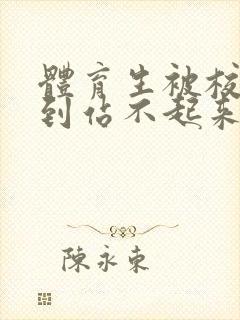 體育生被校
到佔不起来
陳永東